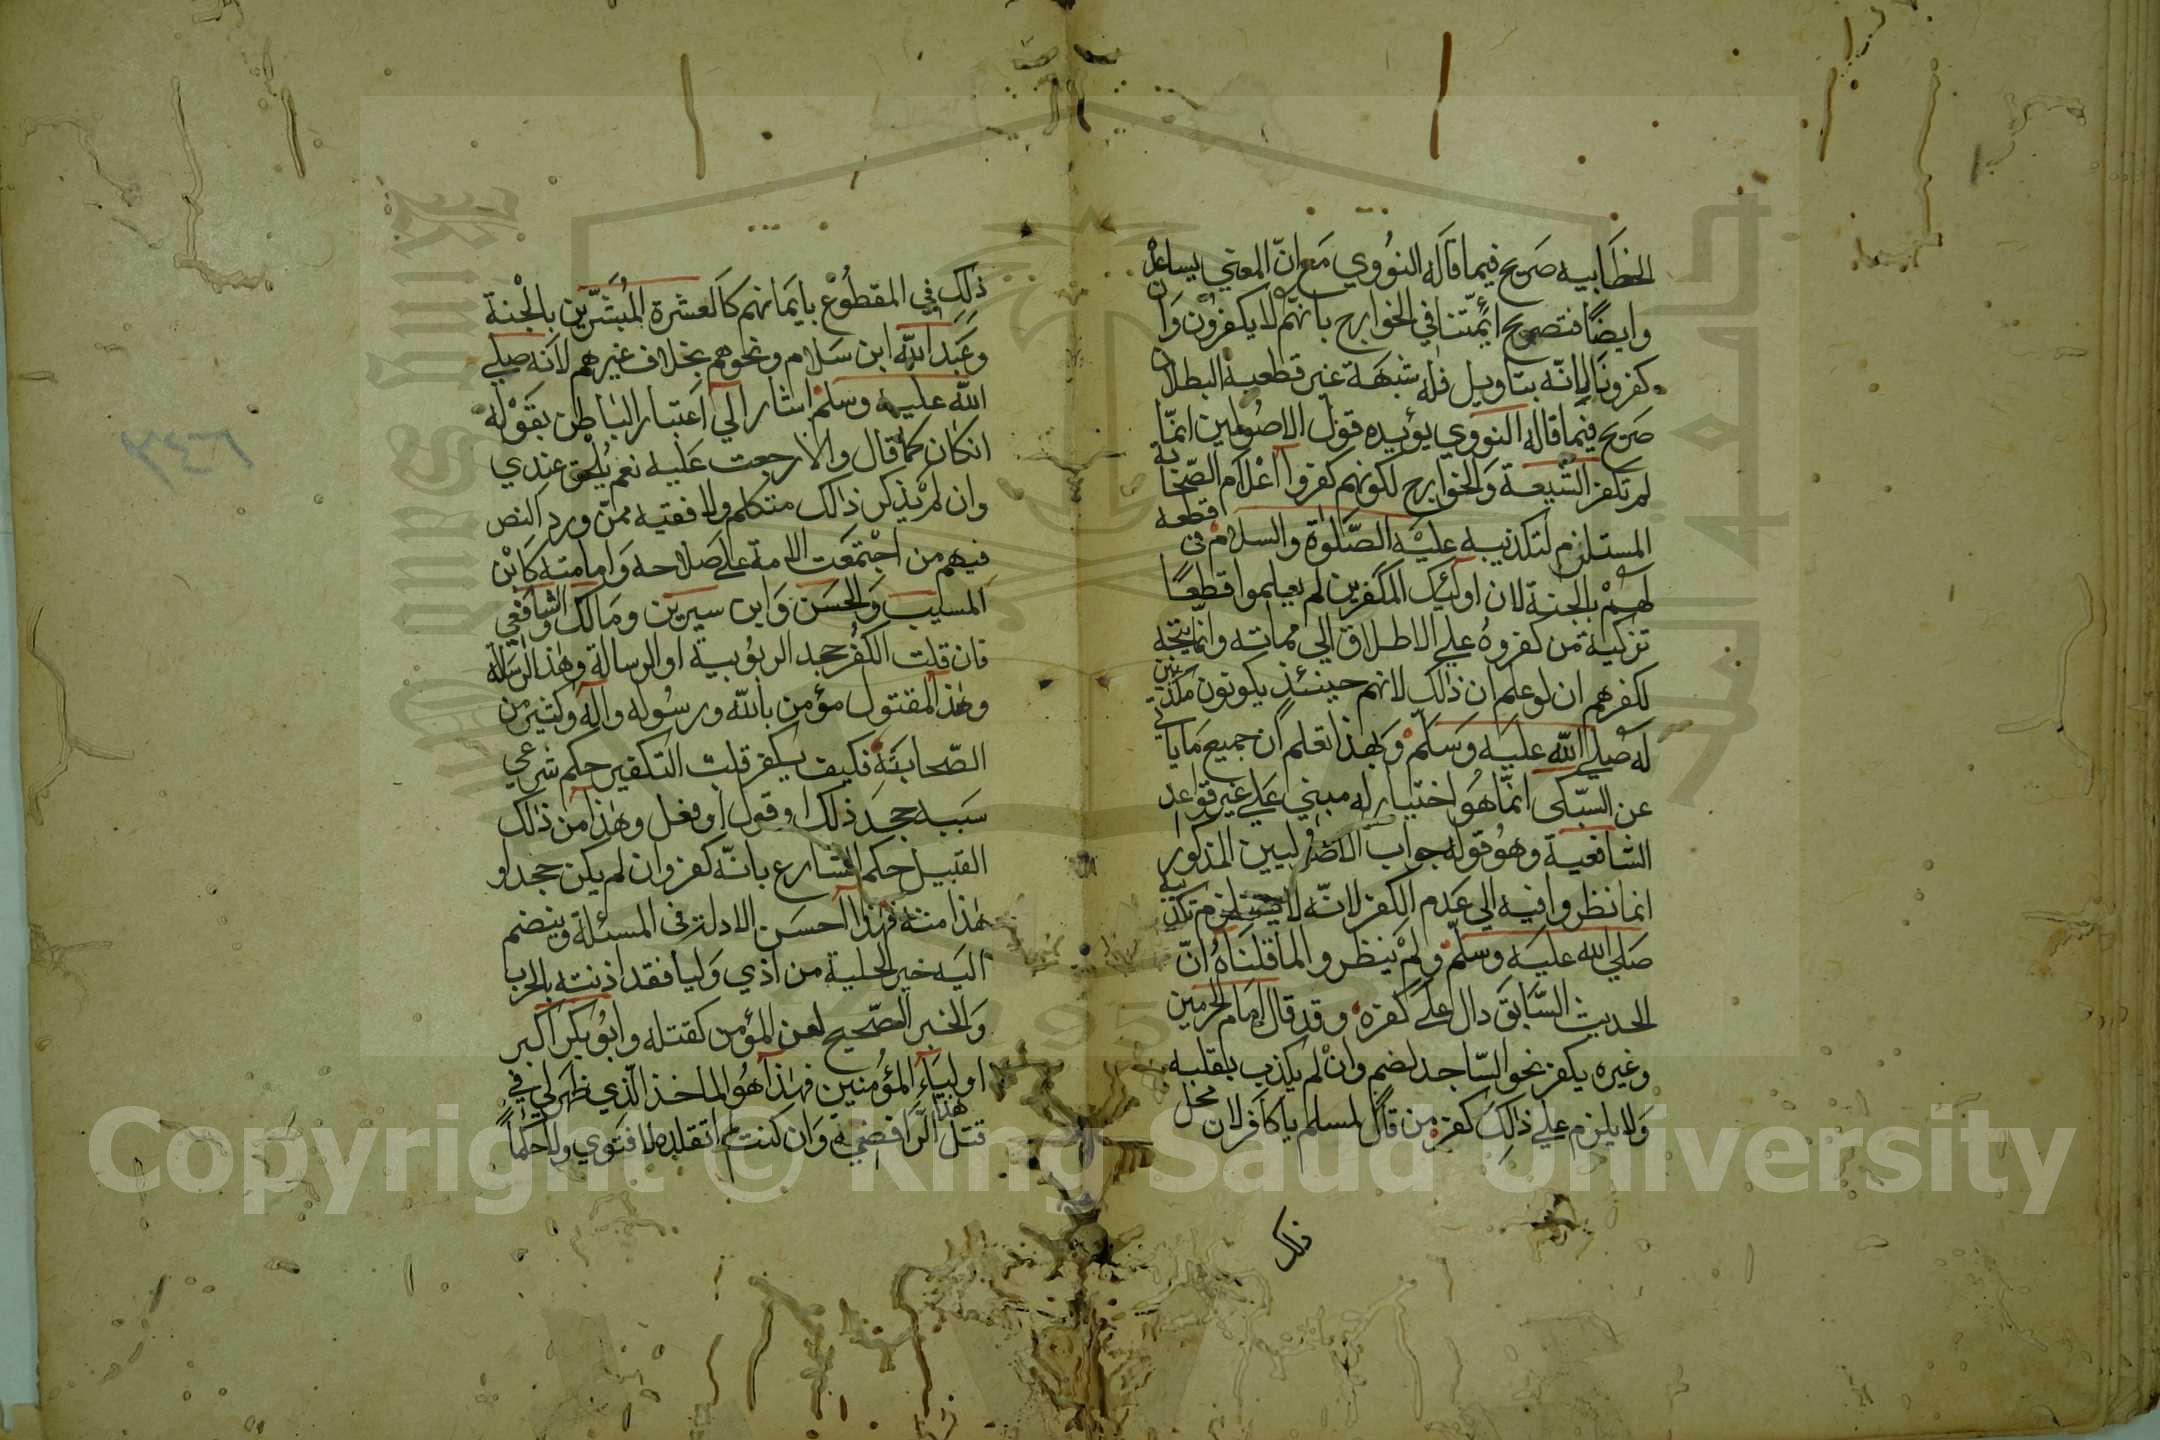 الخطابيه صريح فيما قاله النووي مع ان المعني يساعد
وايضا فتصريح ائمتنا في الخوارج بانهم لا يكفرون وان
كفرونا لانه بتاويل فله شبهة غير قطعية البطلان
صريح فيما قاله النووي يؤيده قول الاصوليين انما
لم تكفر الشيعة والخوارج لكونهم كفروا اعلام الصحابة
المستلزم لتكذيبه عليه الصلوة والسلام في قطعه
لهم بالجنة لان اولئيك المكفرين لم يعلموا قطعا
تزكية من كفروه علي الاطلاق الي مماته وانما يتجه
لكفرهم ان لو علم ان ذالك لانهم حينئذ يكونون مكذبين
له صلي الله عليه وسلم وبهذا تعلم ان جميع ما ياتي
عن السبكى انما هو اختيار له مبني علي غير قواعد
الشافعية وهو قوله جواب الاصوليين المذكور
انما نظروا فيه الي عدم الكفر لانه لا يستلزم تكذيبه
صلي الله عليه وسلم ولم ينظروا لما قلناه ان
الحديث السابق دال علي كفره وقد قال امام الحرمين
وغيره يكفر نحو الساجد لصنم وان لم يكذب بقلبه
ولا يلزم علي ذالك كفر من قال لمسلم يا كافر لان محل
ذلك
ذلك في المقطوع بايمانهم كالعشرة المبشرين بالجنة
وعبد الله ابن سلام ونحوهم بخلاف غيرهم لانه صلي
الله عليه وسلم اشار الي اعتبار الباطن بقوله
ان كان كما قال والا رجعت عليه نعم يلحق عندي
وان لم يذكر ذالك متكلم ولا فقيه ممن ورد النص
فيهم من اجتمعت الامة علي صلاحه وامامته كابن
المسيب والحسن وابن سيرين ومالك والشافعي
فان قلت الكفر جحد الربوبية او الرسالة وهذا الرسالة
وهذا المقتول مؤمن بالله ورسوله واله وكثير من
الصحابة فكيف يكفر قلت التكفير حكم شرعي
سببه جحد ذلك او قول او فعل وهذا من ذلك
القبيل حكم الشارع بانه كفر وان لم يكن جحدا و
هذا منه فهذا احسن الادلة في المسئلة وينضم
اليه خبر الحلية من اذي وليا فقد اذنته بالحرب
والخبر الصحيح لعن المؤمن كقتله وابو بكر اكبر
اولياء المؤمنين فهذا هو الماخذ الذي ظهر لي في
قتل هذا الرافضي وان كنت لم اتقلده لا فتوي ولا حكما